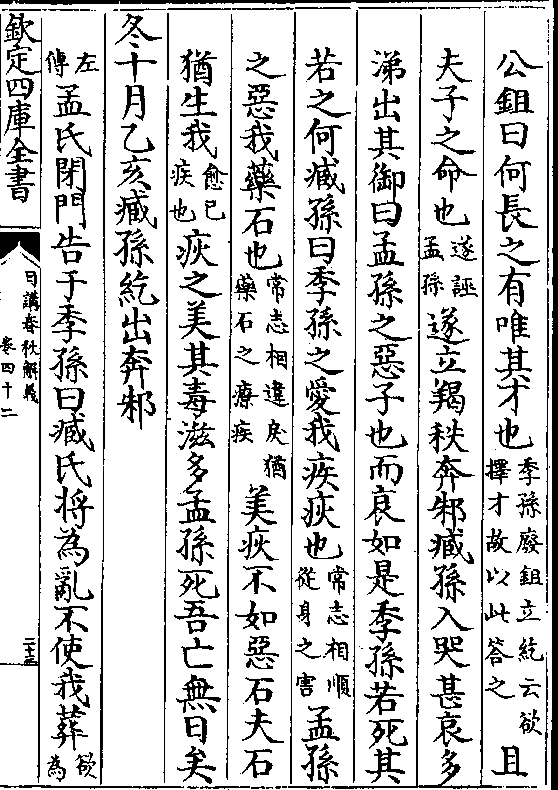 公鉏曰何長之有唯其才也季孫廢鉏立紇云欲擇才故以此答之且
夫子之命也遂誣孟孫遂立羯秩奔邾臧孫入哭甚哀多
涕出其御曰孟孫之惡子也而哀如是季孫若死其
若之何臧孫曰季孫之愛我疾疢也常志相順從身之害孟孫
之惡我藥石也常志相違戾猶藥石之療疾美疢不如惡石夫石
猶生我愈已疾也疢之美其毒滋多孟孫死吾亡無日矣
冬十月乙亥臧孫紇出奔邾
左傳孟氏閉門告于季孫曰臧氏將為亂不使我葬欲為
欽定四庫全書
日講春秋解義
卷四十二
二十三